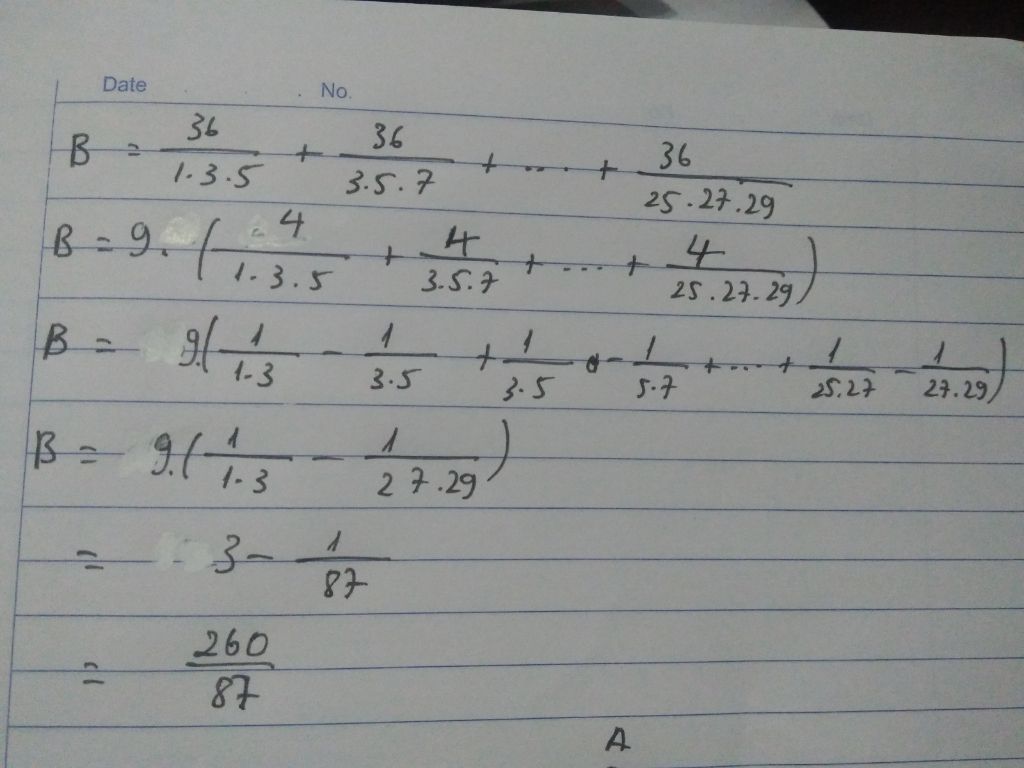 Date No.
B = 36/1.3.5 + 36/3.5.7 + .... + 36/25.27.29
B = 9. (4/1.3.5 + 4/3.5.7 + ... + 4/25.27.29)
B = 9.(1/1.3 - 1/3.5 + 1/3.5 - 1/5.7 + ... + 1/25.27 - 1/27.29)
B = 9.(1/1.3 - 1/27.29)
= 3 - 1/87
= 260/87
A